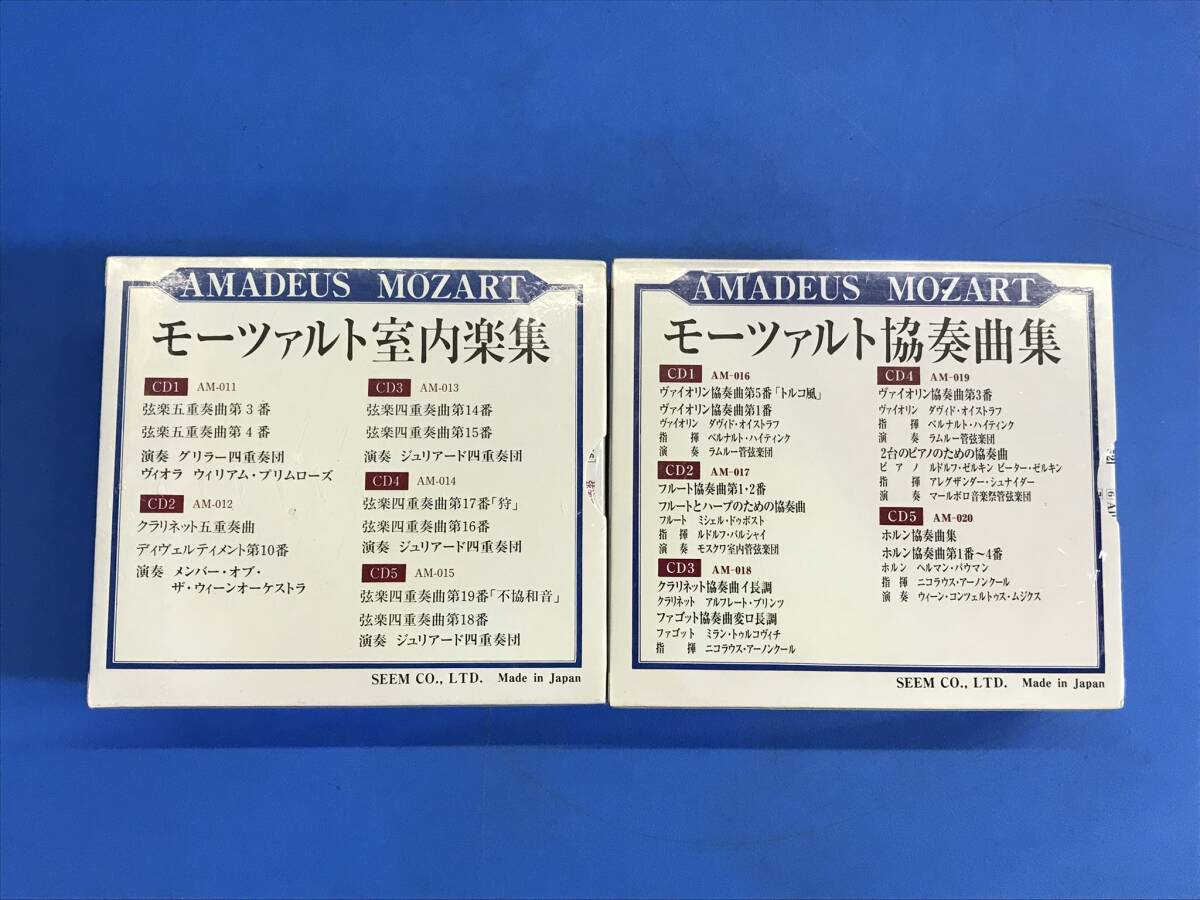 AMADEUS MOZART
モーツァルト室内楽集
CD1 AM-011
弦楽五重奏曲第3番
弦楽五重奏曲第4番
演奏 グリラー四重奏団
ヴィオラ ウィリアム・プリムローズ
CD2 AM-012
クラリネット五重奏曲
ディヴェルティメント第10番
演奏 メンバー・オブ・
ザ・ウィーンオーケストラ
CD3 AM-013
弦楽四重奏曲第14番
弦楽四重奏曲第15番
演奏 ジュリアード四重奏団
CD4 AM-014
弦楽四重奏曲第17番「狩」
弦楽四重奏曲第16番
演奏 ジュリアード四重奏団
CD5 AM-015
弦楽四重奏曲第19番「不協和音」
弦楽四重奏曲第18番
演奏 ジュリアード四重奏団
SEEM CO., LTD. Made in Japan
AMADEUS MOZART
モーツァルト協奏曲集
CD1 AM-016
ヴァイオリン協奏曲第5番「トルコ風」
ヴァイオリン協奏曲第1番
ヴァイオリン ダヴィド・オイストラフ
指揮 ベルナルト・ハイティンク
演奏 ラムルー管弦楽団
CD2 AM-017
フルート協奏曲第1・2番
フルートとハープのための協奏曲
フルート ミシェル・ドゥボスト
指揮 ルドルフ・バルシャイ
演奏 モスクワ室内管弦楽団
CD3 AM-018
クラリネット協奏曲イ長調
クラリネット アルフレート・プリンツ
ファゴット協奏曲変ロ長調
ファゴット ミラン・トゥルコヴィチ
指揮 ニコラウス・アーノンクール
CD4 AM-019
ヴァイオリン協奏曲第3番
ヴァイオリン ダヴィド・オイストラフ
指揮 ベルナルト・ハイティンク
演奏 ラムルー管弦楽団
2台のピアノのための協奏曲
ピアノ ルドルフ・ゼルキン ピーター・ゼルキン
指揮 アレグザンダー・シュナイダー
演奏 マールボロ音楽祭管弦楽団
CD5 AM-020
ホルン協奏曲集
ホルン協奏曲第1番〜4番
ホルン ヘルマン・バウマン
指揮 ニコラウス・アーノンクール
演奏 ウィーン・コンツェルトゥス・ムジクス
SEEM CO., LTD. Made in Japan